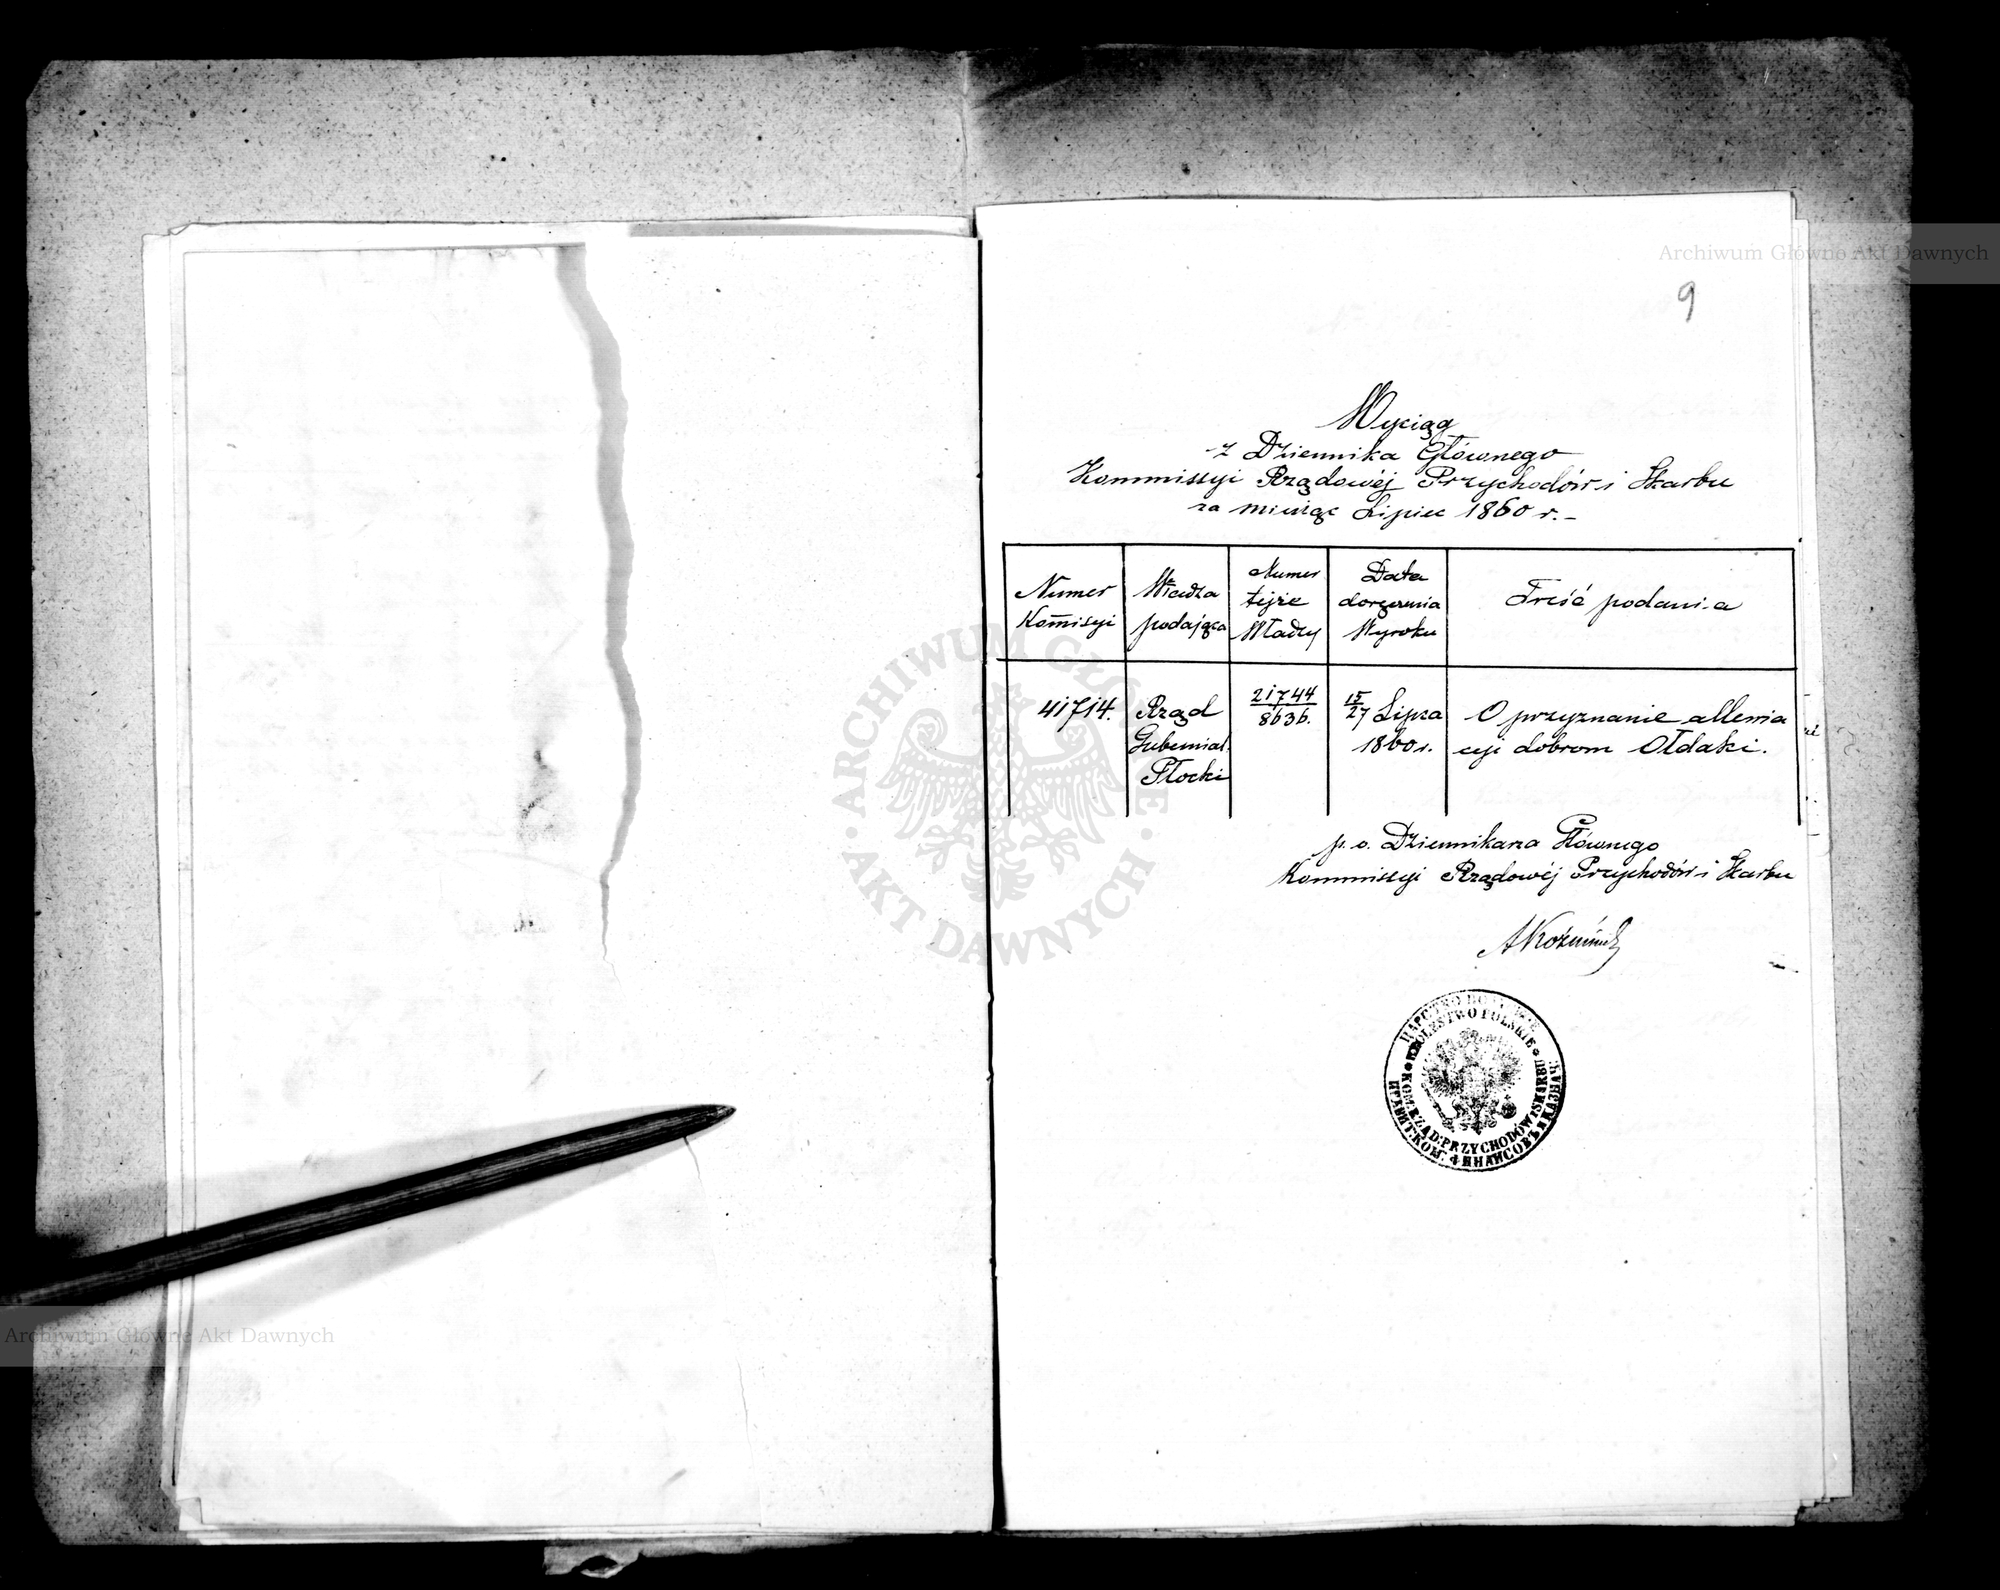 Archiwum Główne Akt Dawnych
9
Wyciąg
z Dziennika Głównego
Kommissyi Rządowéj Przychodów i Skarbu
za miesiąc Lipiec 1860 r.-
Numer Komisyi
Władza podająca
Numer tejże Władzy
Data doręczenia Wyroku
Treść podania
41714.
Rząd Gubernial. Płocki
21744
8636.
15/27 Lipca 1860 r.
O przyznanie allewia
cyi dobrom Ołdaki.
p. o. Dziennikarza Głównego
Kommissyi Rządowéj Przychodów i Skarbu
KRÓLESTWO POLSKIE
KOM. RZĄD. PRZYCHODÓW I SKARBU
ФИНАНСОВЪ И КАЗНАЧ.
ARCHIWUM GŁÓWNE
AKT DAWNYCH
Archiwum Główne Akt Dawnych